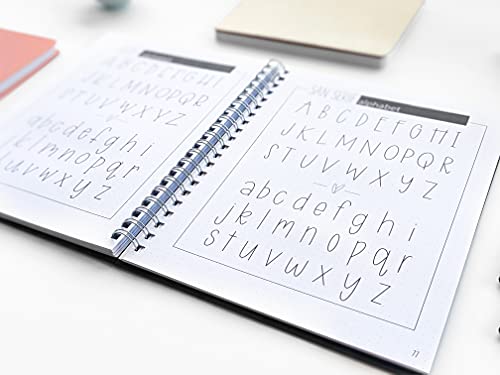 A B C D E F G H I
J K L M N O P Q R
S T U V W X Y Z
a b c d e f g h i
j k l m n o p q r
s t u v w x y z
SAN SERIF
alphabet
A B C D E F G H I
J K L M N O P Q R
S T U V W X Y Z
a b c d e f g h i
j k l m n o p q r
s t u v w x y z
11